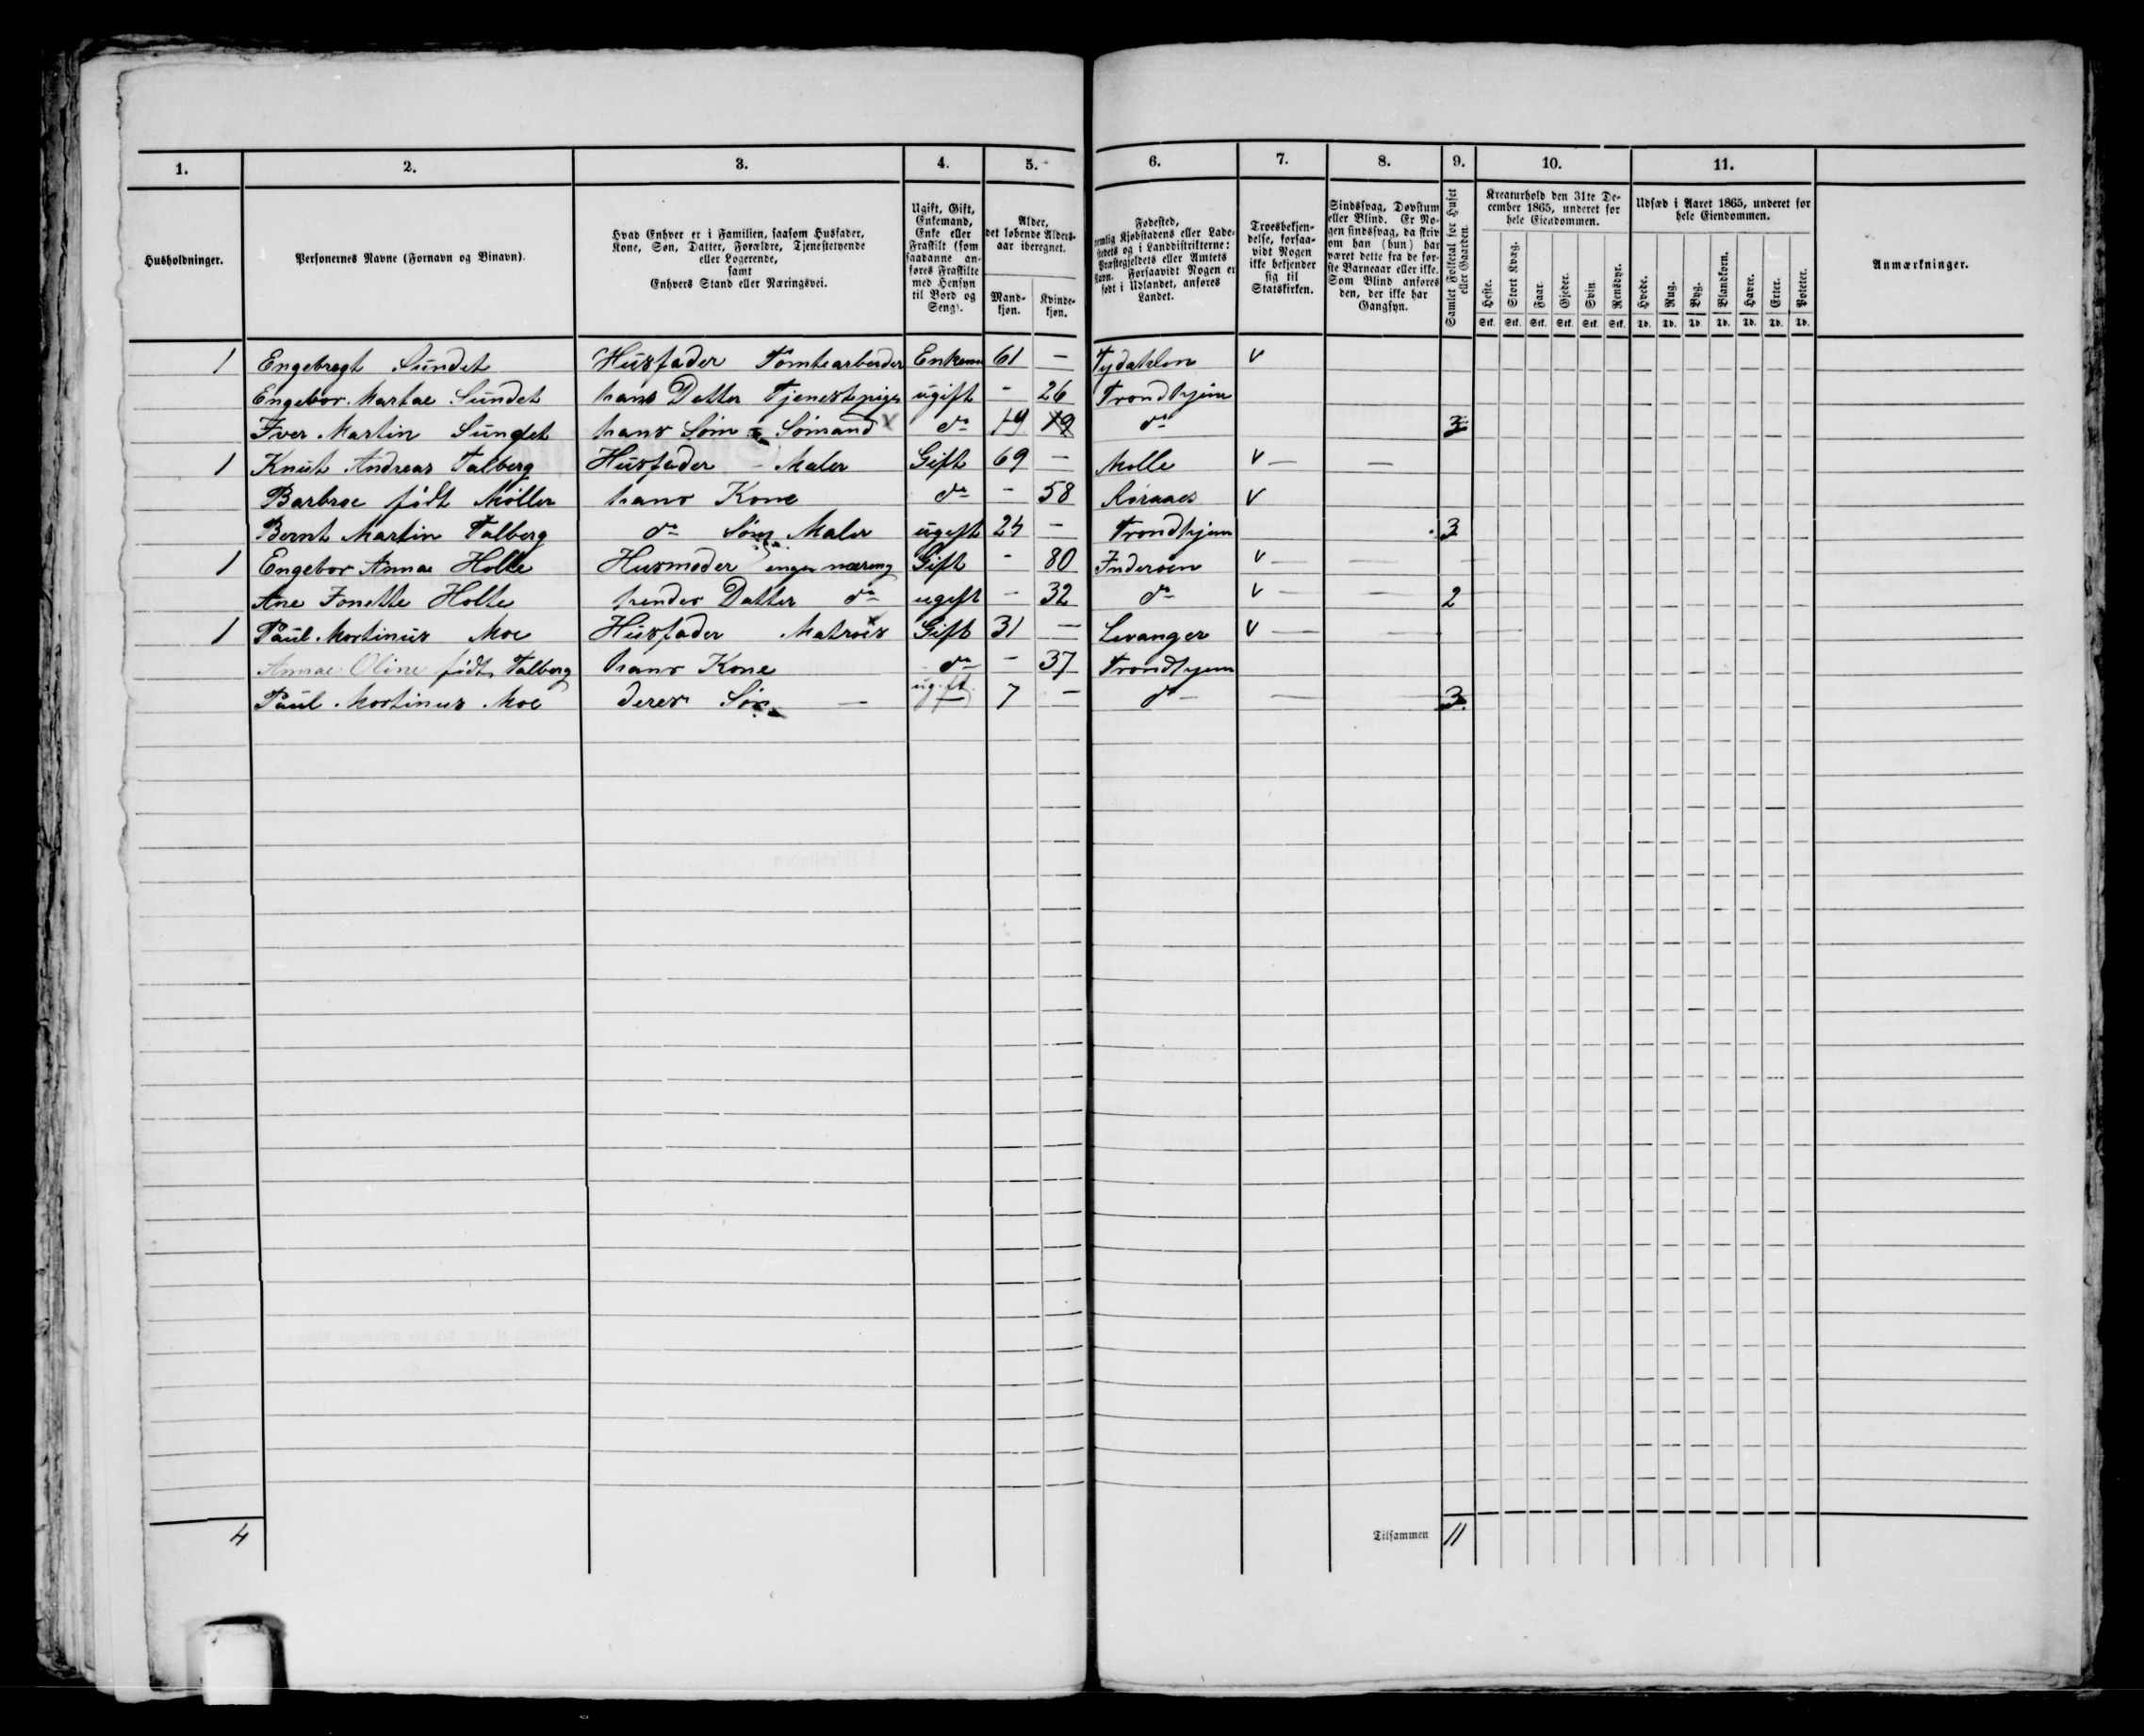 1. 2. 3. 4. 5. 6. 7. 8. 9. 10. 11.
Husholdninger.
Personernes Navne (Fornavn og Binavn).
Hvad Enhver er i Familien, saasom Husfader,
Kone, Søn, Datter, Forældre, Tjenestetyende
eller Logerende,
samt
Enhvers Stand eller Næringsvei.
Ugift, Gift,
Enkemand,
Enke eller
Fraskilt (som
saadanne an-
føres Fraskilte
med Hensyn
til Bord og
Seng).
Alder,
det løbende Alders-
aar iberegnet.
Mand-
kjøn.
Kvinde-
kjøn.
Fødested,
nemlig Kjøbstadens eller Lade-
stedets og i Landdistrikterne:
Præstegjeldets eller Amtets
Navn. Forsaavidt Nogen er
født i Udlandet, anføres
Landet.
Troesbekjen-
delse, forsaa-
vidt Nogen
ikke bekjender
sig til
Statskirken.
Sindssvag, Døvstum
eller Blind. Er No-
gen sindssvag, da skriv
om han (hun) har
været dette fra de før-
ste Barneaar eller ikke.
Som Blind anføres
den, der ikke har
Gangsyn.
Samlet Folketal for Huset
eller Gaarden.
Kreaturhold den 31te De-
cember 1865, underet for
hele Eiendommen.
Heste. Stort Kvæg. Faar. Gjeder. Svin. Rensdyr.
Stk. Stk. Stk. Stk. Stk. Stk.
Udsæd i Aaret 1865, underet for
hele Eiendommen.
Hvede. Rug. Byg. Blandkorn. Havre. Erter. Poteter.
Td. Td. Td. Td. Td. Td. Td.
Anmærkninger.
1 Engebregt Sundet Husfader Tomtearbeider Enkem 61 — Tydahlen v
Engebor Martae Sundet hans Datter Tjenestepige ugift - 26 Trondhjem
Iver Martin Sundet hans Søn - Sømand x do 19 19 do 3
1 Knut Andreas Talberg Husfader - Maler Gift 69 — Molle v — —
Barbroe født Møller hans Kone do - 58 Røraaes v
Bernt Martin Talberg do Søn Maler ugift 24 — Trondhjem 3
1 Engebor Annae Holte Husmoder ingen næring Gift - 80 Inderøen v — —
Ane Jonette Holte hendes Datter do ugift - 32 do v — — 2
1 Paul Mortinus Moe Husfader Matros x Gift 31 — Levanger v — —
Annae Oline født Talberg hans Kone do - 37 Trondhjem
Paul Mortinus Moe deres Søn — ugift 7 — do — — 3
4 Tilsammen 11